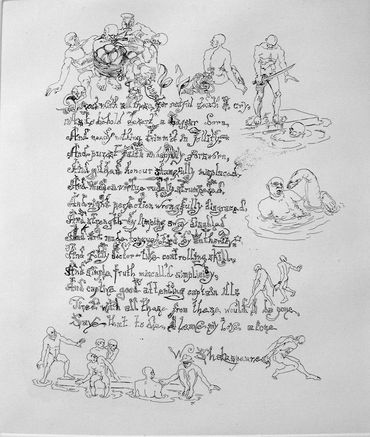 Tired with all these, for restful death I cry,
As to behold desert a beggar born,
And needy nothing trimm'd in jollity,
And purest faith unhappily forsworn,
And gilded honour shamefully misplaced,
And maiden virtue rudely strumpeted,
And right perfection wrongfully disgraced,
And strength by limping sway disabled
And art made tongue-tied by authority,
And folly doctor-like controlling skill,
And simple truth miscalled simplicity,
And captive good attending captain ill
Tired with all these from these would I be gone,
Save that to die, I leave my love alone.
W. Shakespeare